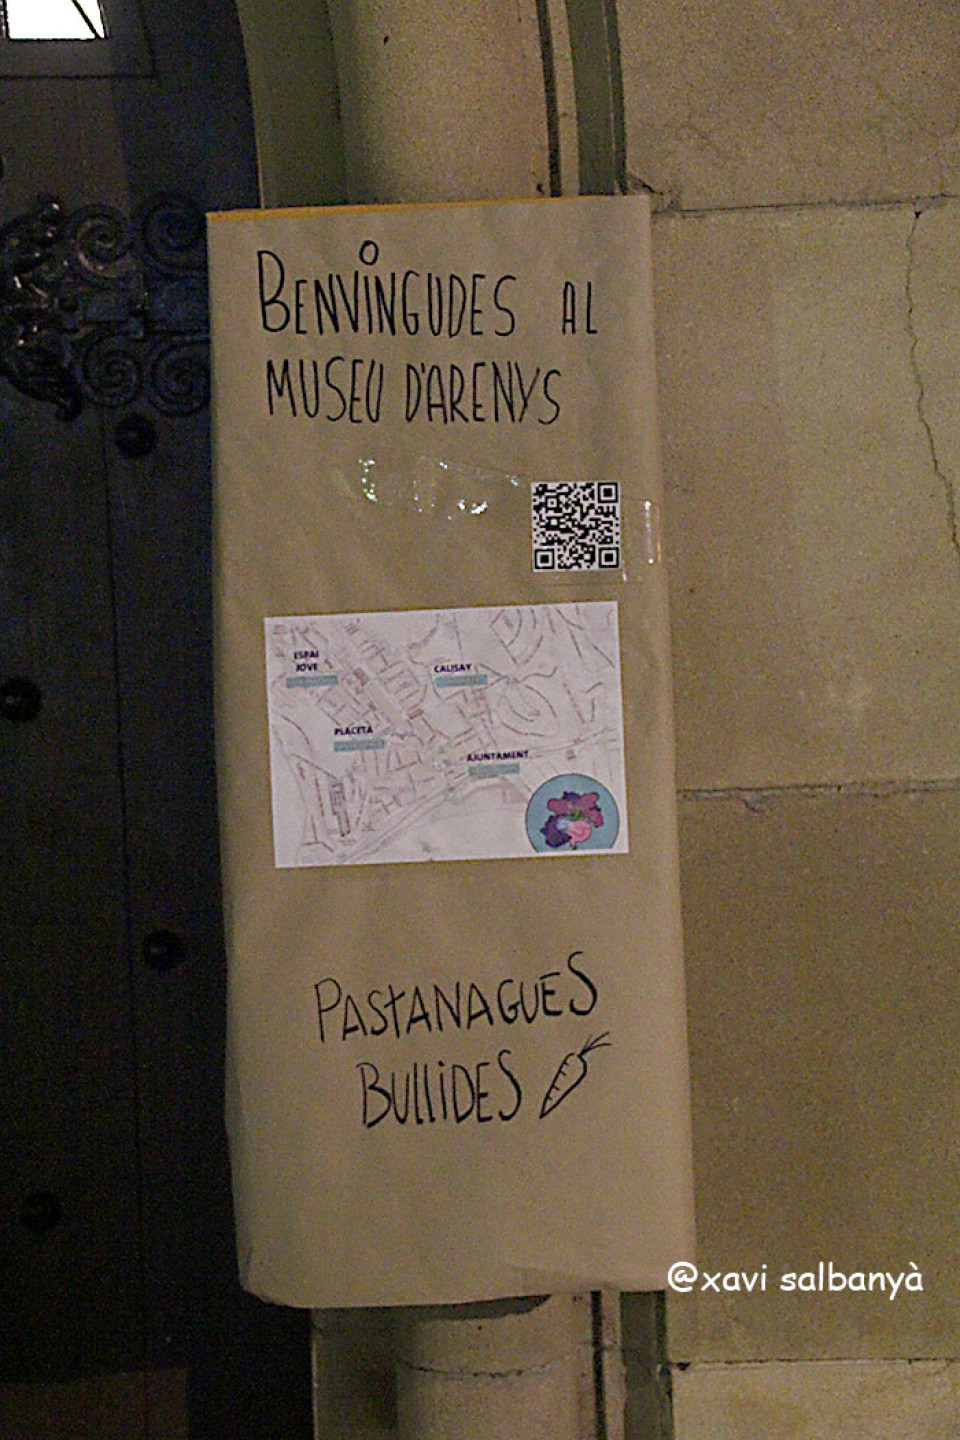 BENVINGUDES AL
MUSEU D'ARENYS
ESPAI
JOVE
CALISAY
PLACETA
AJUNTAMENT
PASTANAGUES
BULLIDES
@xavi salbanyà